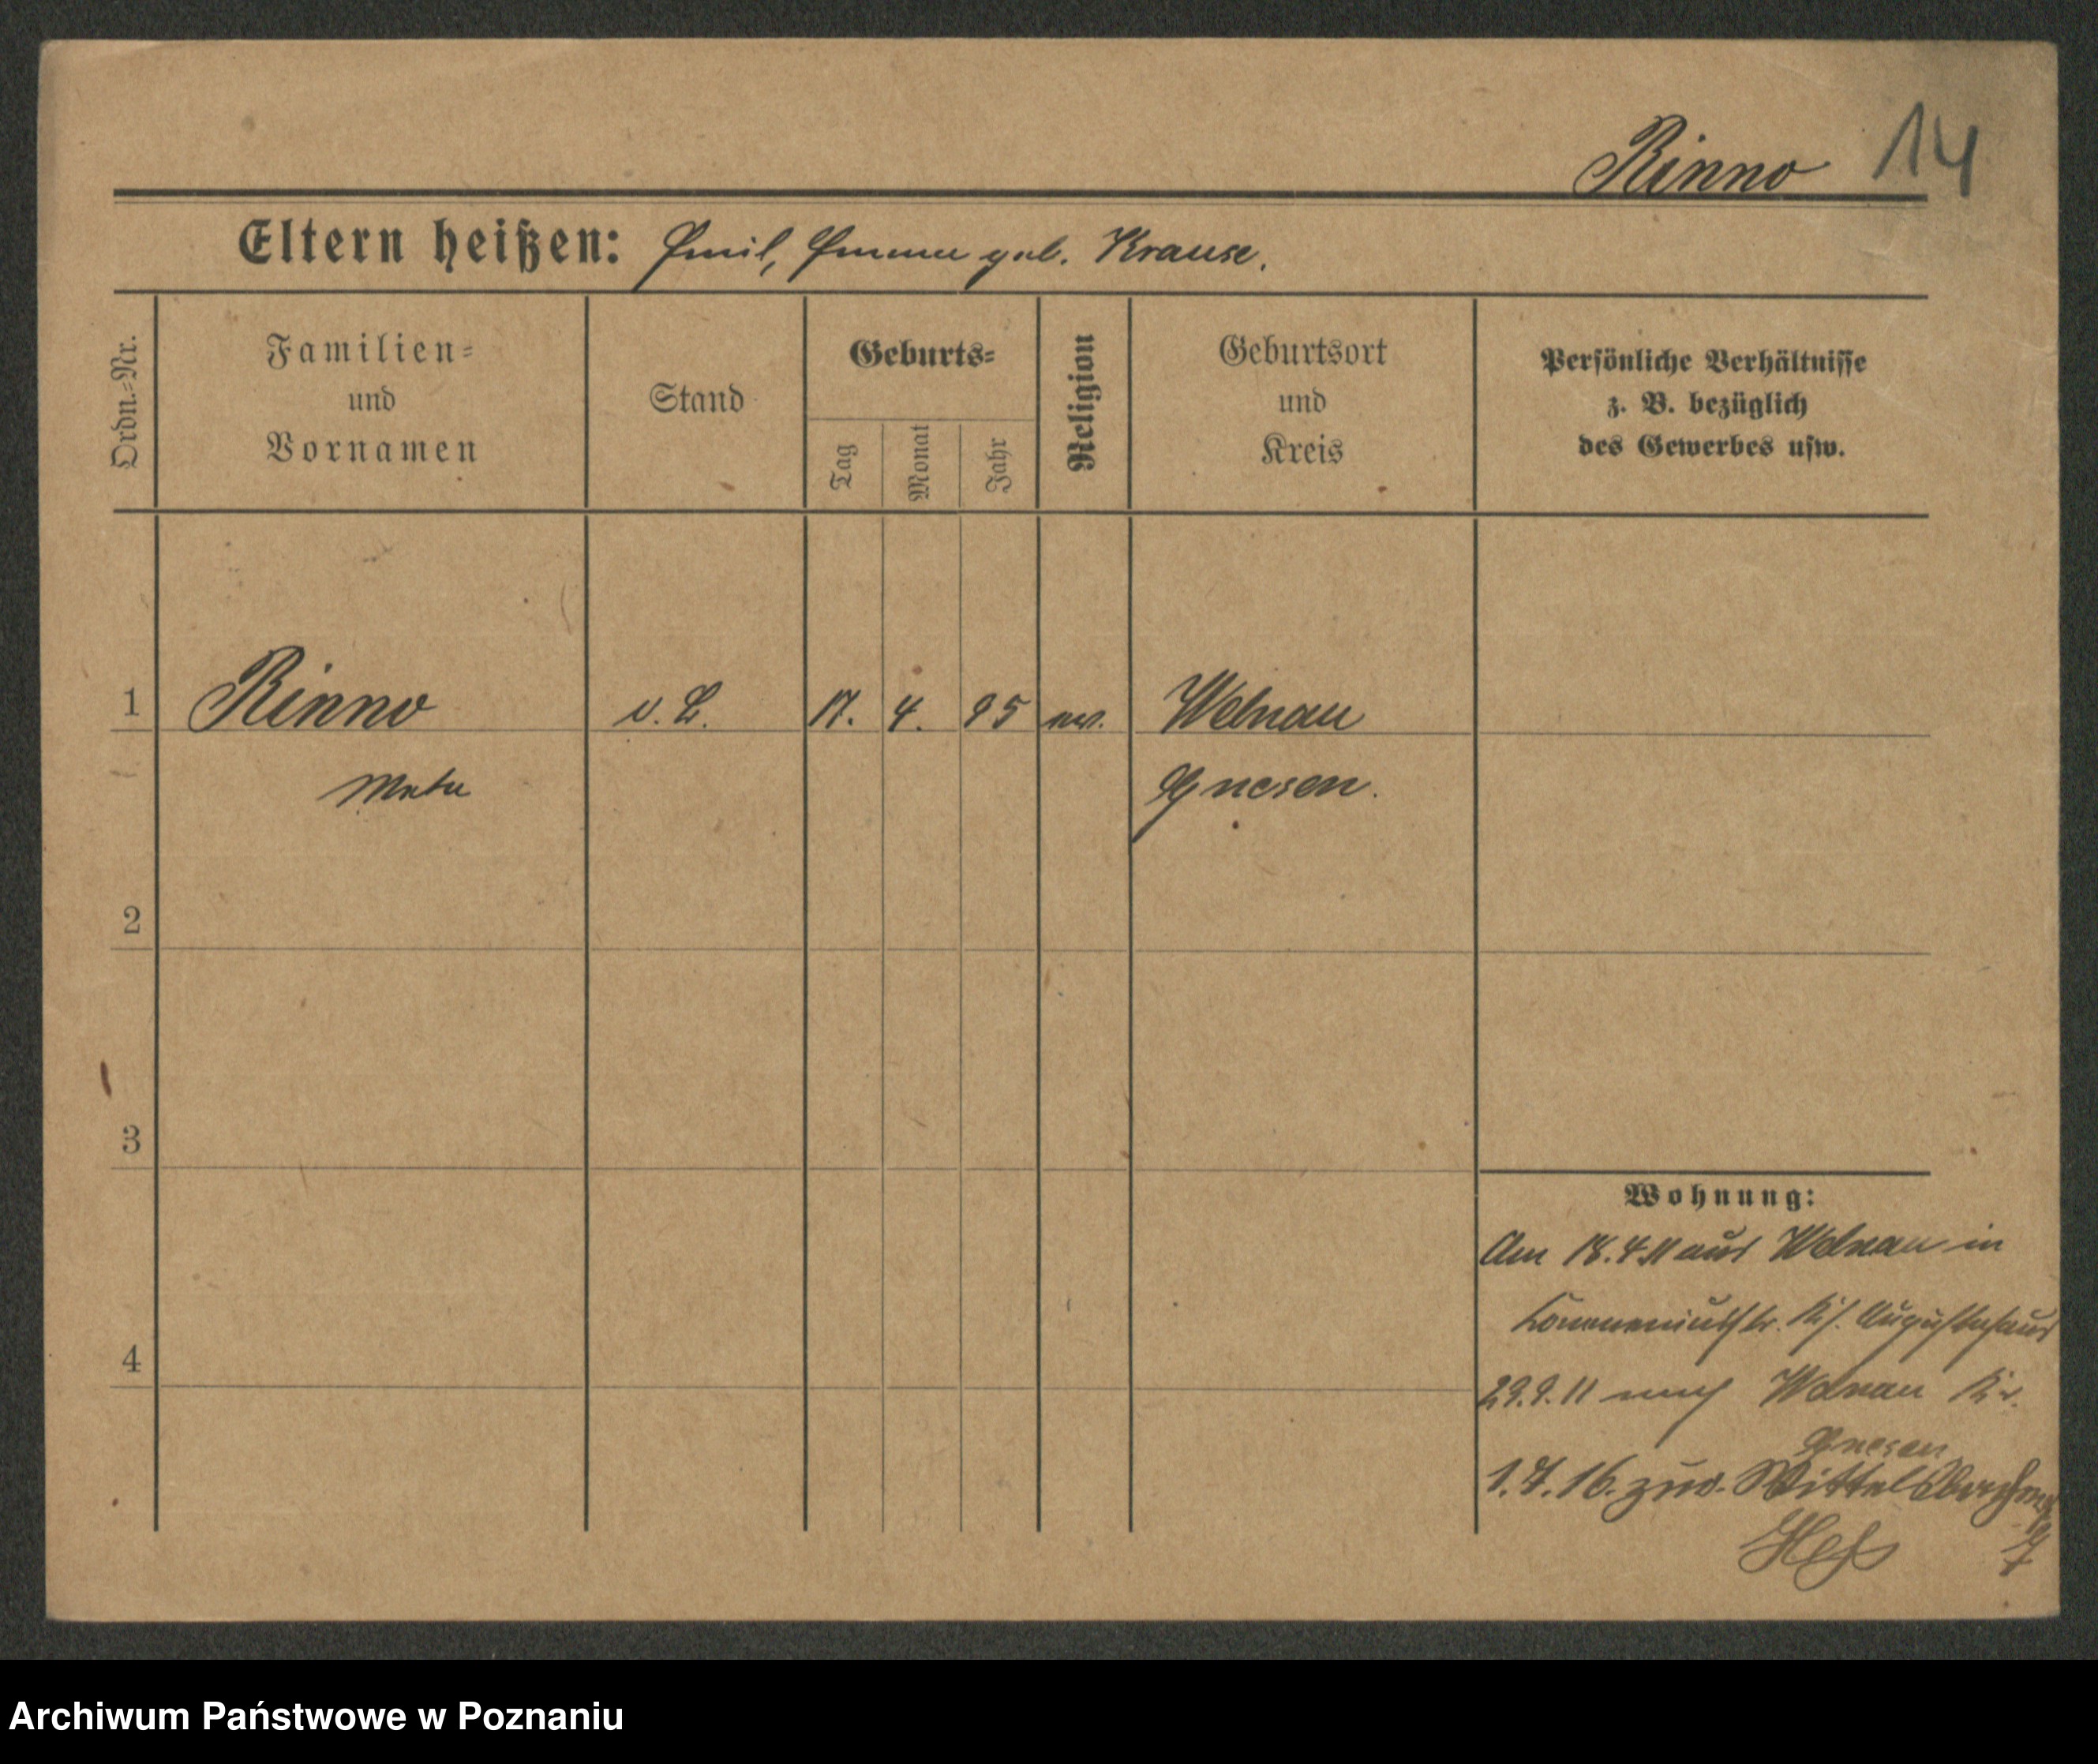 Rinno 14
Eltern heißen: Emil, Emma geb. Krause.
Ordn.-Nr.
Familien-
und
Vornamen
Stand
Geburts-
Tag
Monat
Jahr
Religion
Geburtsort
und
Kreis
Persönliche Verhältnisse
z. B. bezüglich
des Gewerbes usw.
1 Rinno 17. 4. 95 ev. Welnau
Meta Gnesen.
2
3
Wohnung:
Am 18.4.11 aus Welnau in
4
29.9.11 nach Welnau Kr.
Gnesen
1.7.16. zur.
Archiwum Państwowe w Poznaniu